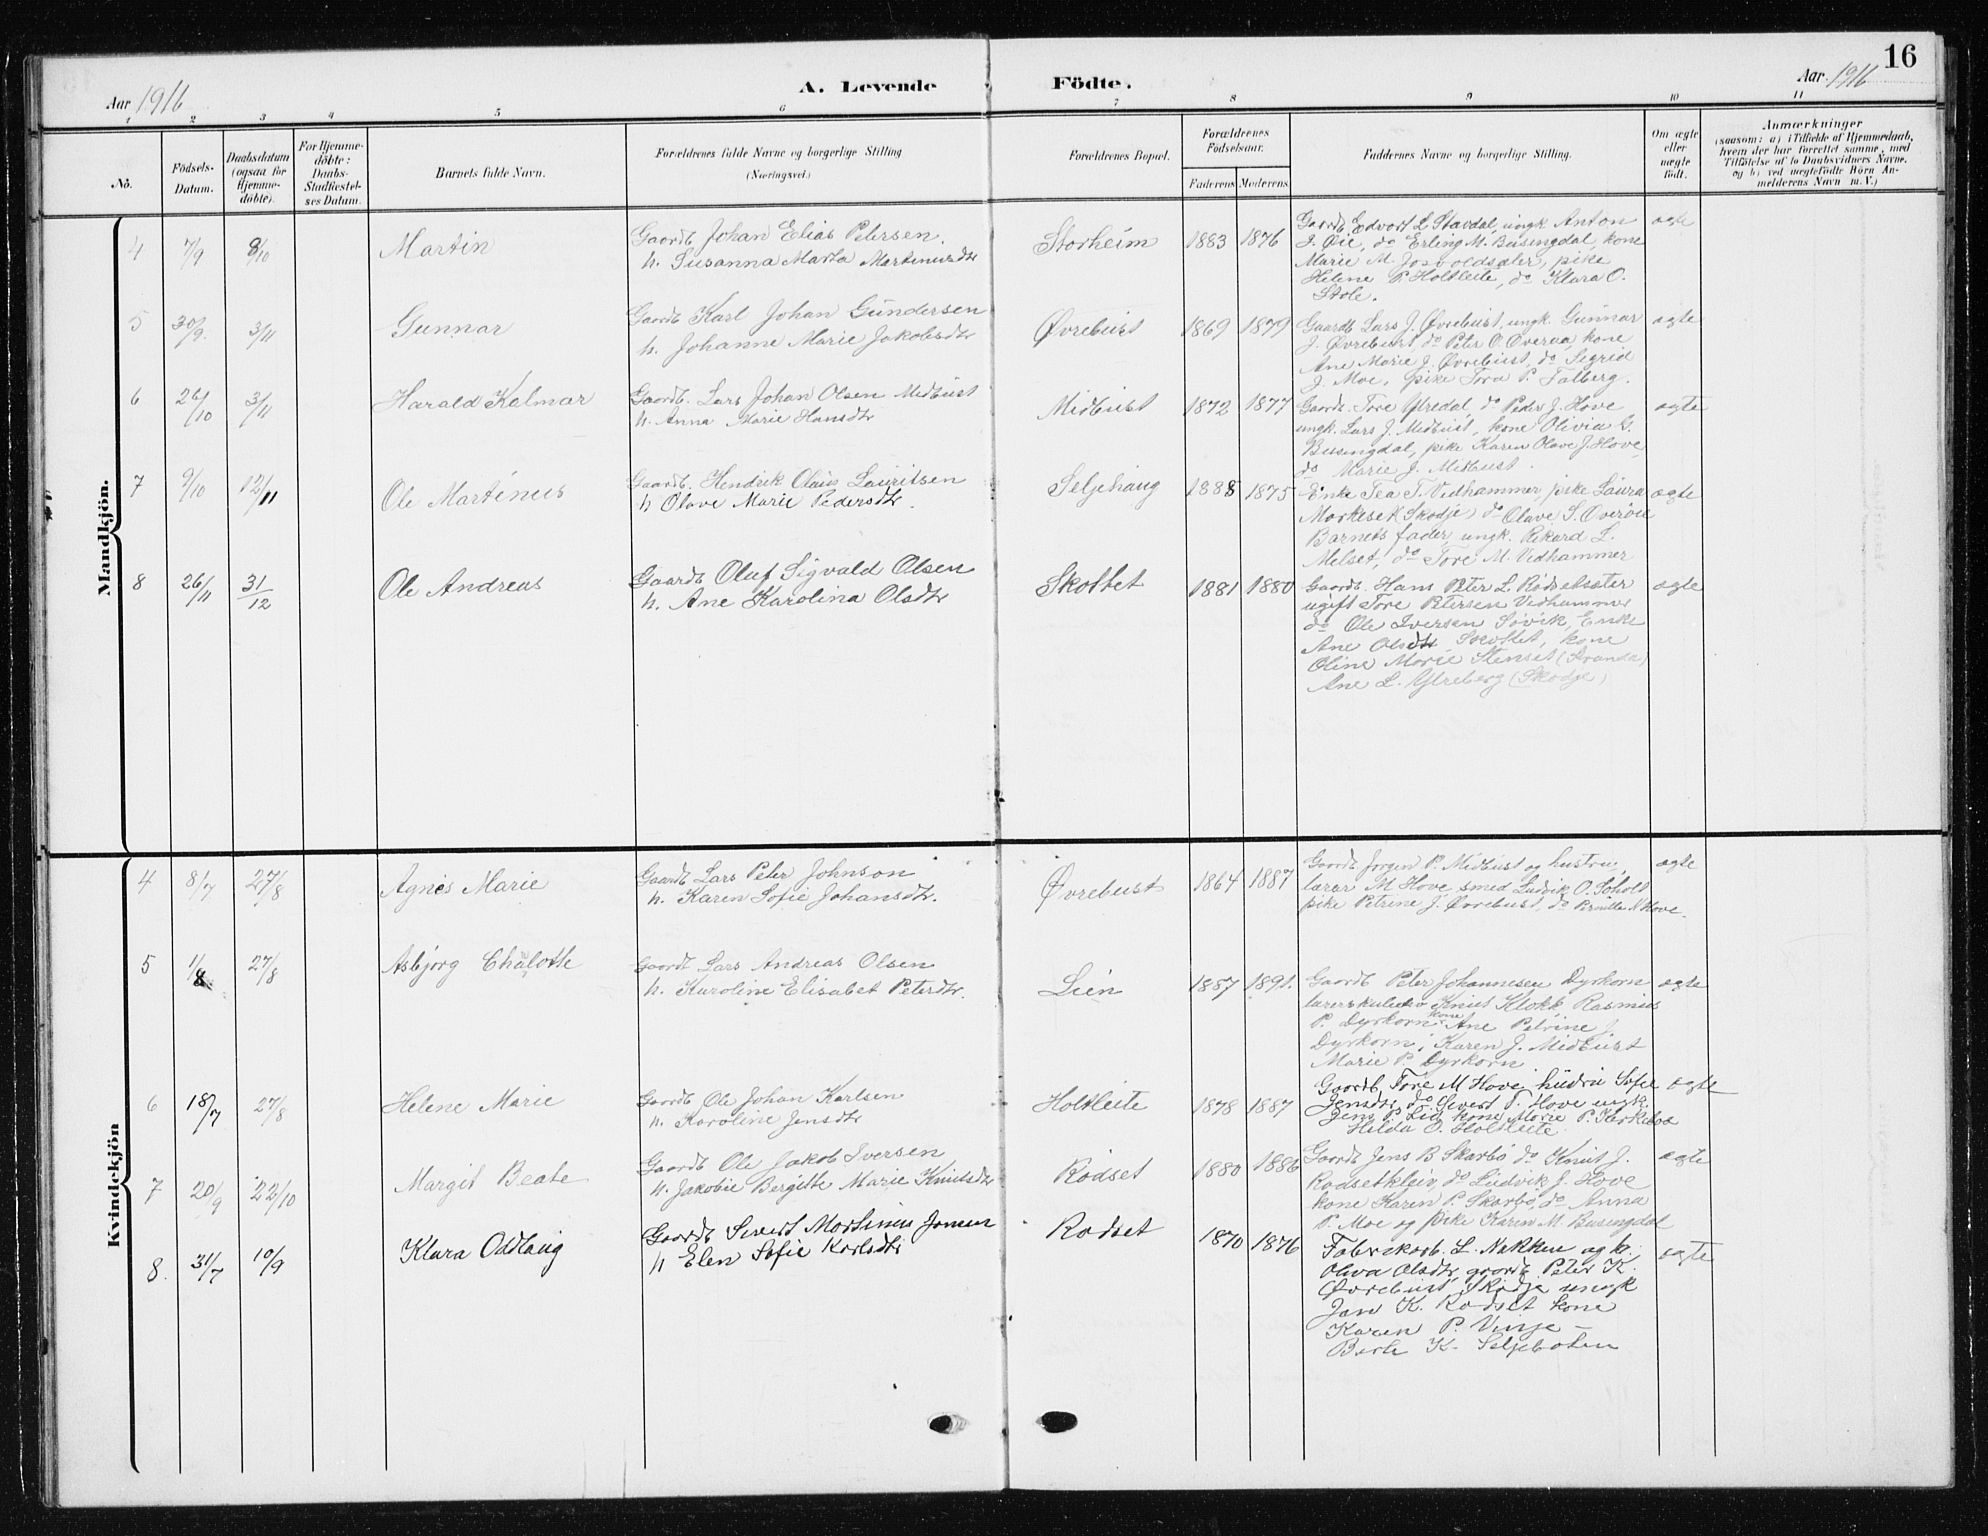 16
Aar 1916
A. Levende
Födte.
Aar 1916
1 2 3 4 5 6 7 8 9 10 11
No.
Födsels-
Datum.
Daabsdatum
(ogsaa for
Hjemme-
döbte).
For Hjemme-
döbte:
Daabs-
Stadfæstel-
ses Datum.
Barnets fulde Navn.
Forældrenes fulde Navne og borgerlige Stilling
(Næringsvei.)
Forældrenes Bopæl.
Forældrenes
Födselsaar.
Faderens
Moderens
Faddernes Navne og borgerlige Stilling.
Om ægte
eller
uægte
födt.
Anmærkninger
(saasom: a) i Tilfælde af Hjemmedaab,
hvem der har forrettet samme, med
Tilföielse af to Daabsvidners Navne.
og b) ved uægtefödte Börn An-
melderens Navn m. V.)
Mandkjön.
4 7/9 8/10 Martin
Gaardb Johan Elias Petersen.
h. Susanna Marta Martinusdtr
Storheim 1883 1876
Gaardb. Edvart L Stavdal, ungk Anton
J. Øie, do Erling M. Busingdal, kone
Marie M
Helene P. Holtleite, do Klara O.
Stole.
ægte
5 30/9. 3/11 Gunnar
Gaardb Karl Johan Gundersen
h. Johanne Marie Jakobsdtr
Øvrebust 1869 1879
Gaardb Lars J. Øvrebust, ungk. Gunnar
J. Øvrebust do Peter O. Øveraa, kone
Ane Marie J. Øvrebust, do Sigrid
J. Moe, pike Tora P. Falberg.
ægte
6 26/10 3/11 Harald Kalmar
Gaardb. Lars Johan Olsen Midbust
h. Anna Marie Hansdtr
Midbust 1872 1877
Gaardb. Tore Ytredal, do Peder J. Hove
ungk. Lars J. Midbust, kone Olivia G.
Busingdal, pike Karen Olave J. Hove,
do Marie J. Midbust.
ægte
7 9/10 12/11 Ole Martinus
Gaardb. Hendrik Olaus Lauritsen
h Olave Marie Pedersdtr.
Seljehaug 1885 1875
Enke Tea T. Vidhammer, pike Laura
Morkeset (Skodje) do Olave S. Overøie
Barnets fader, ungk. Rikard L.
Melset, do Tore M. Vidhammer
ægte
8 26/11 31/12 Ole Andreas
Gaardb Oluf Sigvald Olsen
h. Ane Karolina Olsdtr
Skottet 1881 1880
Gaardb. Hans Peter L Rødsetsæter
ugift Tore Petersen Vidhammer
do Ole Iversen Søvik, Enke
Ane Olsdtr Skottet, kone
Oline Marie Stenset (Stranda)
Ane L. Ytreberg (Skodje)
ægte
Kvindekjön
4 8/7 27/8 Agnes Marie
Gaardb Lars Peter Johnson
h. Karen Sofie Johansdtr.
Øvrebust 1864 1887
Gaardb Jørgen P. Midbust og hustru,
lærer M Hove smed Ludvik O. Søholt
pike Petrine J. Øvrebust, do Pernille N Hove.
ægte
5 1/8 27/8 Asbjørg Chalotte
Gaardb Lars Andreas Olsen
h. Karoline Elisabet Petersdtr.
Lien 1887 1891.
Gaardb Peter Johannesen Dyrkorn
lærerskuleelev Knut Klokk Rasmus
P. Dyrkorn kone Ane Petrine J.
Dyrkorn, Karen J. Midbust
Marie P. Dyrkorn
ægte
6 18/7 27/8 Helene Marie
Gaardb Ole Johan Karlsen
h. Karoline Jensdtr
Holtleite 1878 1887
Gaardb. Tore M Hove, hustru Sofie
Jensdtr, do Sivert T. Hove ungk.
Jens P Lid, kone Marie P. Kirkebø
Helda O. Holtleite.
ægte
7 20/9 22/10 Margit Beate
Gaardb Ole Jakob Iversen
h. Jakobie Bergitte Marie Knutsdtr
Rødset 1880 1886
Gaardb Jens B Skarbø do Knut J.
Rødsetkleiv do Ludvik J. Hove
kone Karen P. Skarbø, do Anna
P. Moe og pike Karen M. Busingdal
ægte
8. 31/7 10/9 Klara Oddlaug
Gaardb Sivert Martinus Jonsen
h Elen Sofie Karlsdtr
Rødset 1870 1876
Fabrikarb. L. Nakken og k.
Oliva Olsdtr, gaardb Peter K.
Øvrebust, Skodje ungk
Jan K. Rødset kone
Karen P. Vinje –
Berte K. Seljebotn
ægte